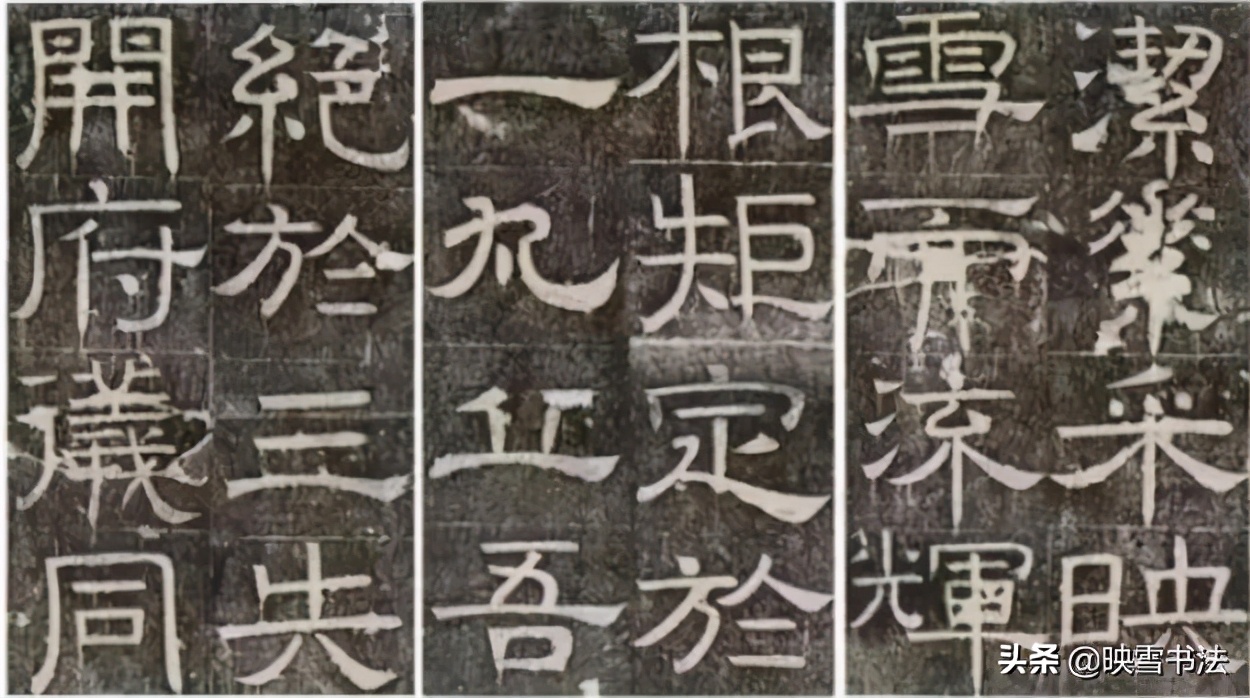 潔采映
雪而流輝
根矩定於
一丘吾
絕於三失
開府儀同
头条 @映雪书法